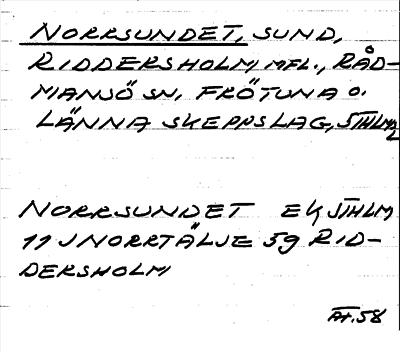 NORRSUNDET, SUND,
RIDDERSHOLM, MFL., RÅD-
MANSÖ SN, FRÖTUNA O.
LÄNNA SKEPPSLAG, STHLM
NORRSUNDET EK STHLM
11 J NORRTÄLJE 59 RID-
DERSHOLM